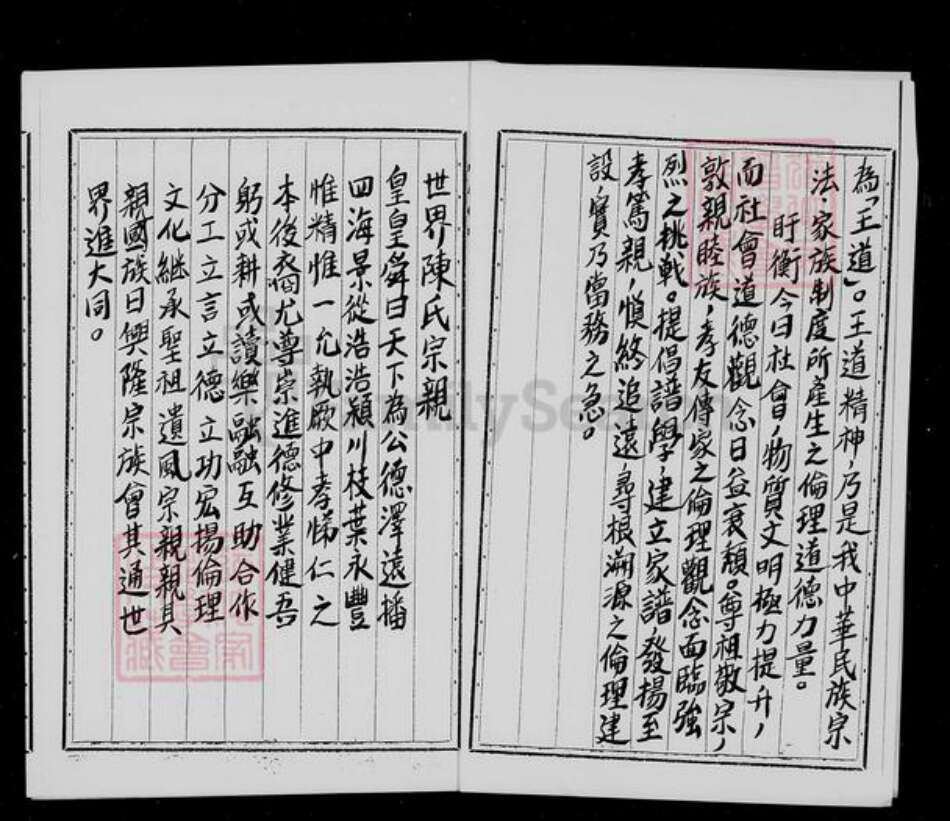 為「王道」。王道精神，乃是我中華民族宗
法，家族制度所產生之倫理道德力量。
盱衡今日社會，物質文明極力提升，
而社會道德觀念日益衰頹。尊祖敬宗，
敦親睦族，孝友傳家之倫理觀念面臨強
烈之挑戰。提倡譜學，建立家譜，發揚至
孝篤親，慎終追遠，尋根溯源之倫理建
設，實乃當務之急。
世界陳氏宗親
皇皇舜曰天下為公德澤遠播
四海景從浩浩潁川枝葉永豐
惟精惟一允執厥中孝悌仁之
本後裔尤尊崇進德修業健吾
躬或耕或讀樂融融互助合作
分工立言立德立功宏揚倫理
文化繼承聖祖遺風宗親親其
親國族日興隆宗族會其通世
界進大同。